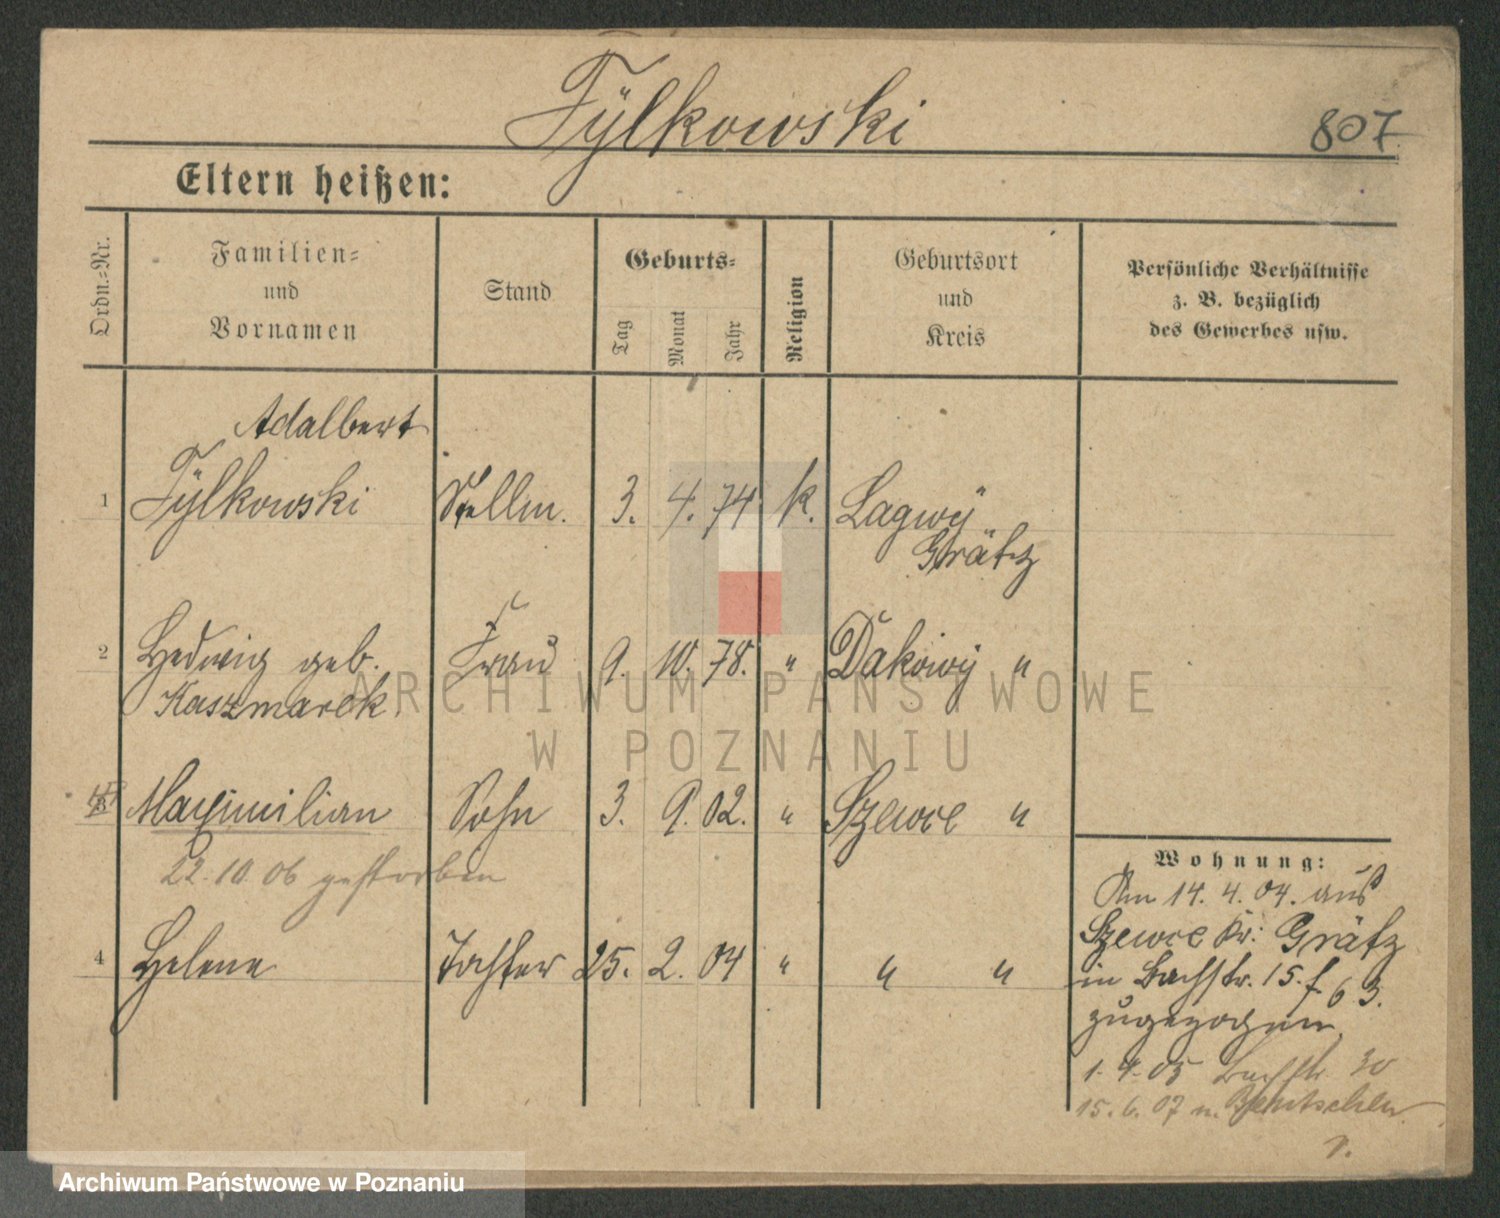 Tÿlkowski
807
Eltern heißen:
Ordn.-Nr.
Familien-
und
Vornamen
Stand
Geburts-
Tag
Monat
Jahr
Religion
Geburtsort
und
Kreis
Persönliche Verhältnisse
z. B. bezüglich
des Gewerbes usw.
Adalbert
1 Tÿlkowski Stellm. 3. 4. 74 k. Lagwÿ
Grätz
2 Hedwig geb. Frau 9. 10. 78. " Dakowÿ "
Kaszmarek.
3 Maximilian Sohn 3. 9. 02. " Szewce "
22.10.06 gestorben
4 Helene Tochter 25. 2. 04 " " "
Wohnung:
Am 14. 4. 04. aus
Szewce Kr: Grätz
in Bachstr. 15. f. 63.
zugezogen.
1. 4. 05 Bachstr. 30
15. 6. 07 n. Bentschen.
ARCHIWUM PAŃSTWOWE
W POZNANIU
Archiwum Państwowe w Poznaniu